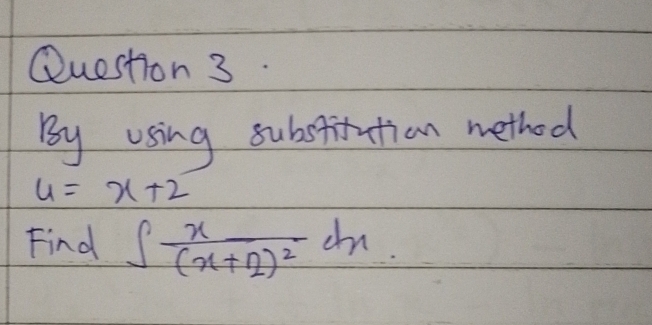 Question 3.
By using substitution method
u = x+2
Find ∫ x/(x+2)² dx.